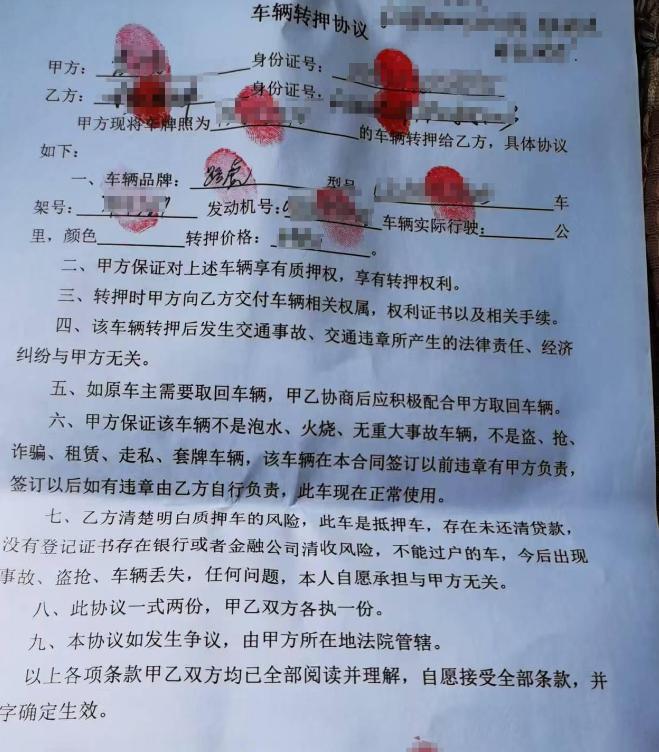 车辆转押协议
甲方： 身份证号：
乙方： 身份证号：
甲方现将车牌照为 的车辆转押给乙方，具体协议
如下：
一、车辆品牌：路虎 型号 车
架号： 发动机号： 车辆实际行驶： 公
里，颜色 转押价格： 。
二、甲方保证对上述车辆享有质押权，享有转押权利。
三、转押时甲方向乙方交付车辆相关权属，权利证书以及相关手续。
四、该车辆转押后发生交通事故、交通违章所产生的法律责任、经济
纠纷与甲方无关。
五、如原车主需要取回车辆，甲乙协商后应积极配合甲方取回车辆。
六、甲方保证该车辆不是泡水、火烧、无重大事故车辆，不是盗、抢、
诈骗、租赁、走私、套牌车辆，该车辆在本合同签订以前违章有甲方负责，
签订以后如有违章由乙方自行负责，此车现在正常使用。
七、乙方清楚明白质押车的风险，此车是抵押车，存在未还清贷款，
没有登记证书存在银行或者金融公司清收风险，不能过户的车，今后出现
事故、盗抢、车辆丢失，任何问题，本人自愿承担与甲方无关。
八、此协议一式两份，甲乙双方各执一份。
九、本协议如发生争议，由甲方所在地法院管辖。
以上各项条款甲乙双方均已全部阅读并理解，自愿接受全部条款，并
字确定生效。